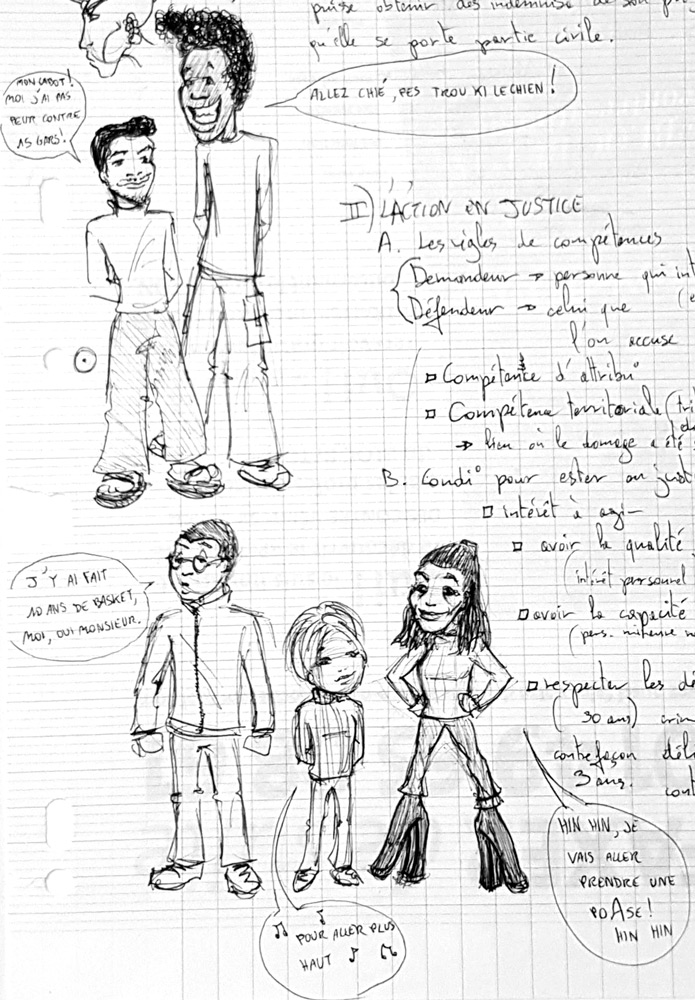 puisse obtenir des indemnise de son
qu'elle se porte partie civile.
MON CABOT!
MOI J'AI PAS
PEUR CONTRE
15 GARS!
ALLEZ CHIÉ, PES TROU KI LE CHIEN!
II) L'ACTION EN JUSTICE
A. Les règles de compétences
Demandeur → personne qui
Défendeur → celui que
l'on accuse
Compétence d'attribu°
Compétence territoriale
→ lieu où le domage a été
B. Condi° pour ester en just
intérêt à agir
avoir la qualité
(intérêt personnel
avoir la capacité
(pers.
respecter les
(30 ans)
contrefaçon
3 ans.
J'Y AI FAIT
10 ANS DE BASKET,
MOI, OUI MONSIEUR.
POUR ALLER PLUS
HAUT
HIN HIN, JE
VAIS ALLER
PRENDRE UNE
POASE!
HIN HIN